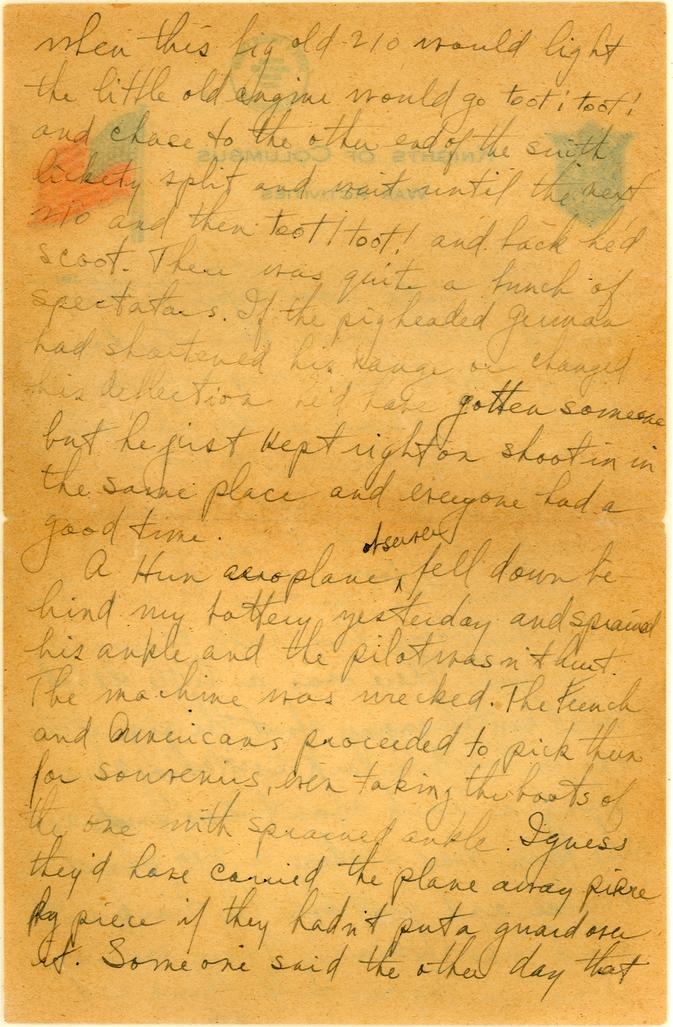 when this big old 210 would light
the little old engine would go toot! toot!
and chase to the other end of the swith
lickety split and wait until the next
210 and then toot! toot! and back he'd
scoot. There was quite a bunch of
spectators. If the pigheaded German
had shortened his range or changed
his deflection he'd have gotten someone
but he just kept right on shootin in
the same place and everyone had a
good time.
observer
A Hun aeroplane, fell down be-
hind my battery yesterday and sprained
his ankle and the pilot wasn't hurt.
The machine was wrecked. The French
and Americans proceeded to pick them
for souvenirs, even taking the boots of
the one with sprained ankle. I guess
they'd have carried the plane away piece
by piece if they hadn't put a guard over
it. Some one said the other day that
KNIGHTS OF COLUMBUS
WAR ACTIVITIES